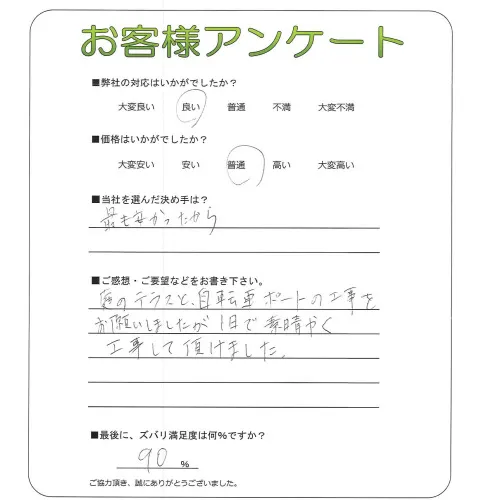 お客様アンケート
■弊社の対応はいかがでしたか？
大変良い 良い 普通 不満 大変不満
■価格はいかがでしたか？
大変安い 安い 普通 高い 大変高い
■当社を選んだ決め手は？
最も安かったから
■ご感想・ご要望などをお書き下さい。
庭のテラスと、自転車ポートの工事を
お願いしましたが1日で素晴やく
工事して頂けました。
■最後に、ズバリ満足度は何%ですか？
90 %
ご協力頂き、誠にありがとうございました。